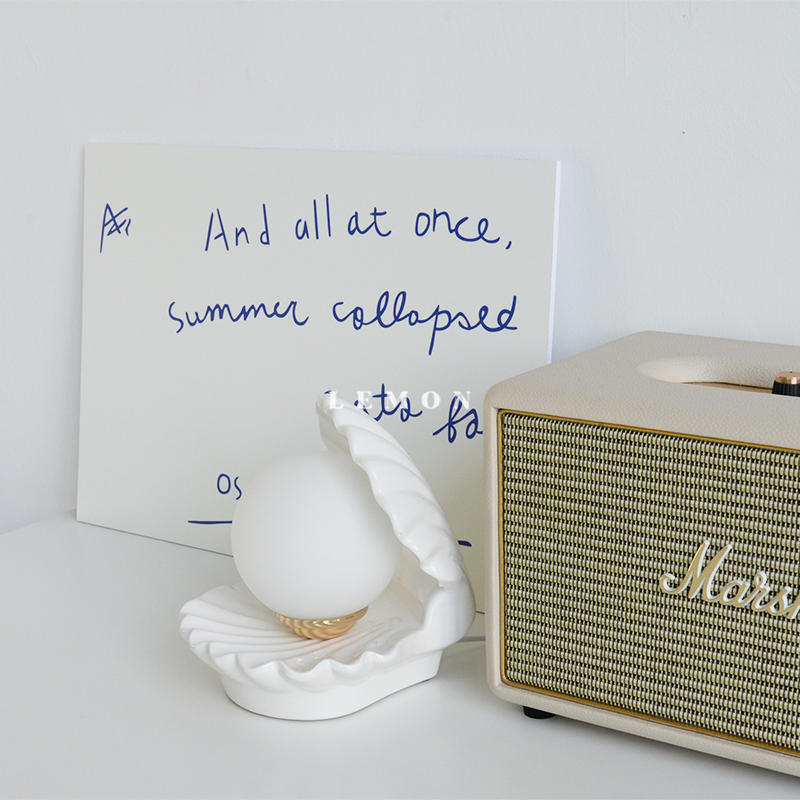 And all at once,
summer collapsed
fa
LEMON
os
Marsh